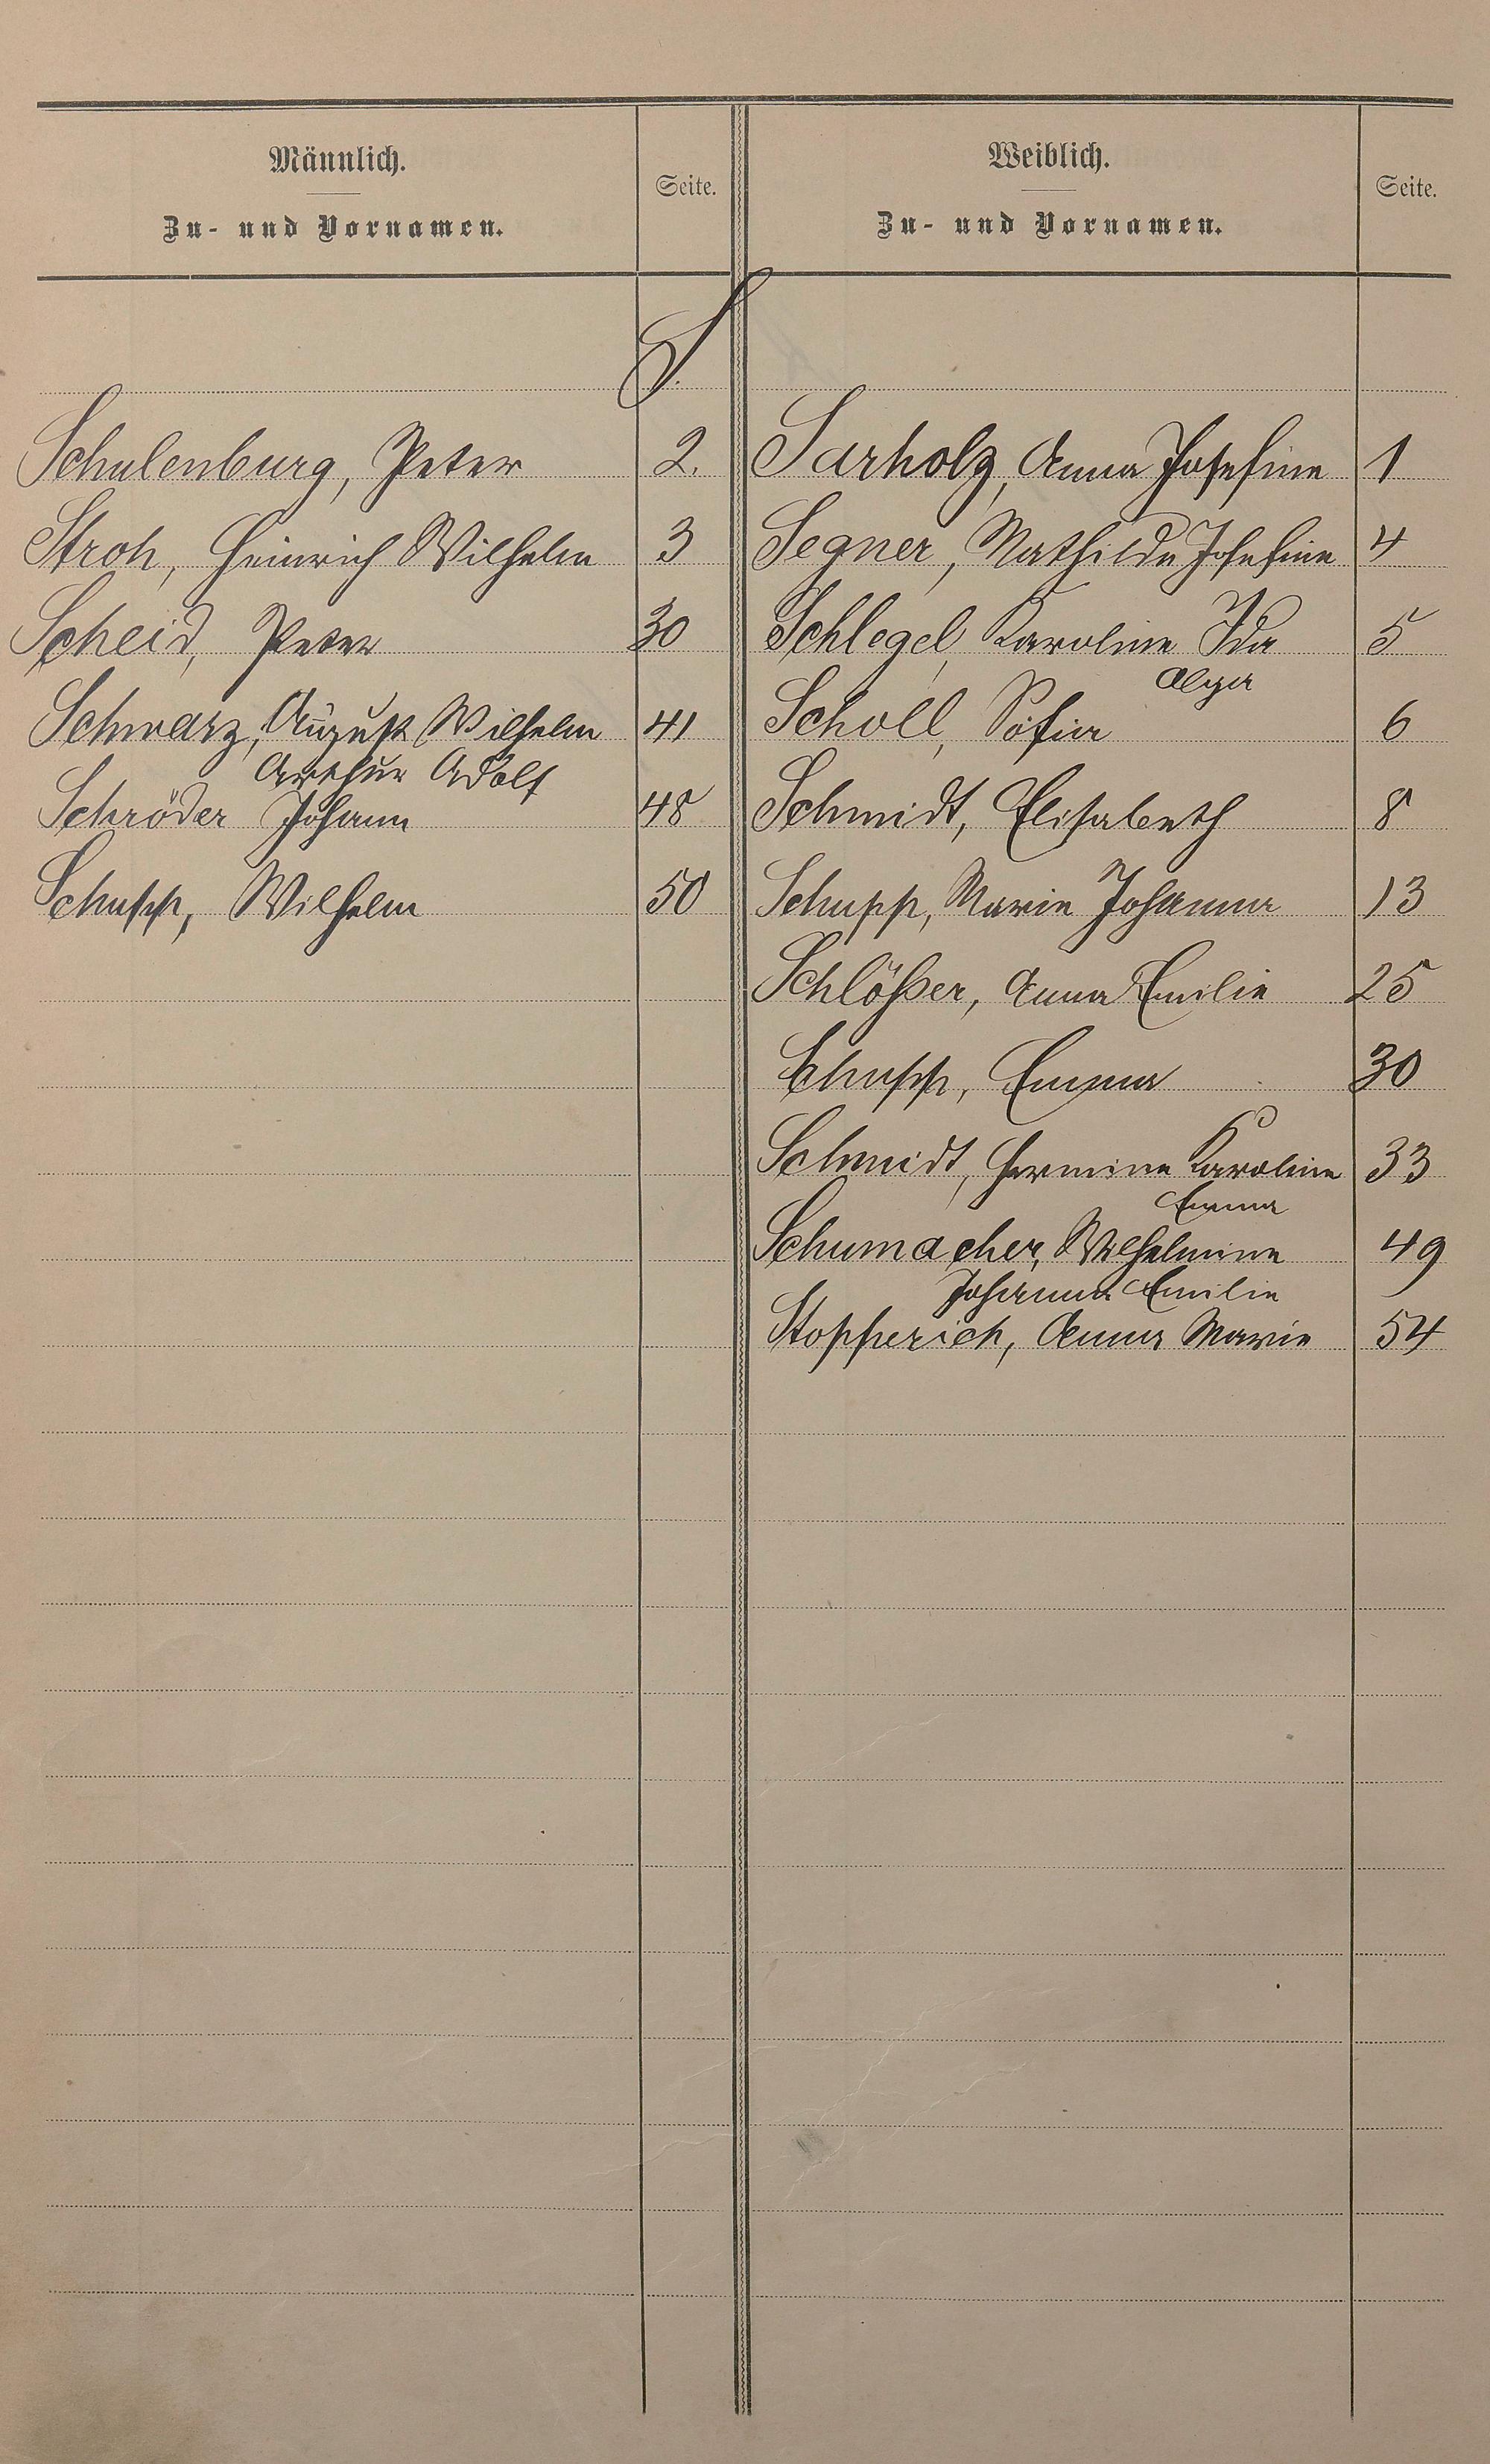 Männlich.
Zu- und Vornamen.
Seite.
Weiblich.
Zu- und Vornamen.
Seite.
S.
Schulenburg, Peter 2.
Stroh, Heinrich Wilhelm 3
Scheid, Peter 30
Schwarz, August Wilhelm 41
Arthur Adolf
Schröder Johann 48
Schupp, Wilhelm 50
Sarholz, Anna Josefine 1
Segner, Mathilde Josefine 4
Schlegel, Karoline Ida 5
Olga
Scholl, Sofia 6
Schmidt, Elisabeth 8
Schupp, Marie Johanna 13
Schlößer, Anna Emilie 25
Schupp, Emma 30
Schmidt, Hermine Karoline 33
Emma
Schumacher, Wilhelmine 49
Johanna Emilie
Stopperich, Anna Marie 54